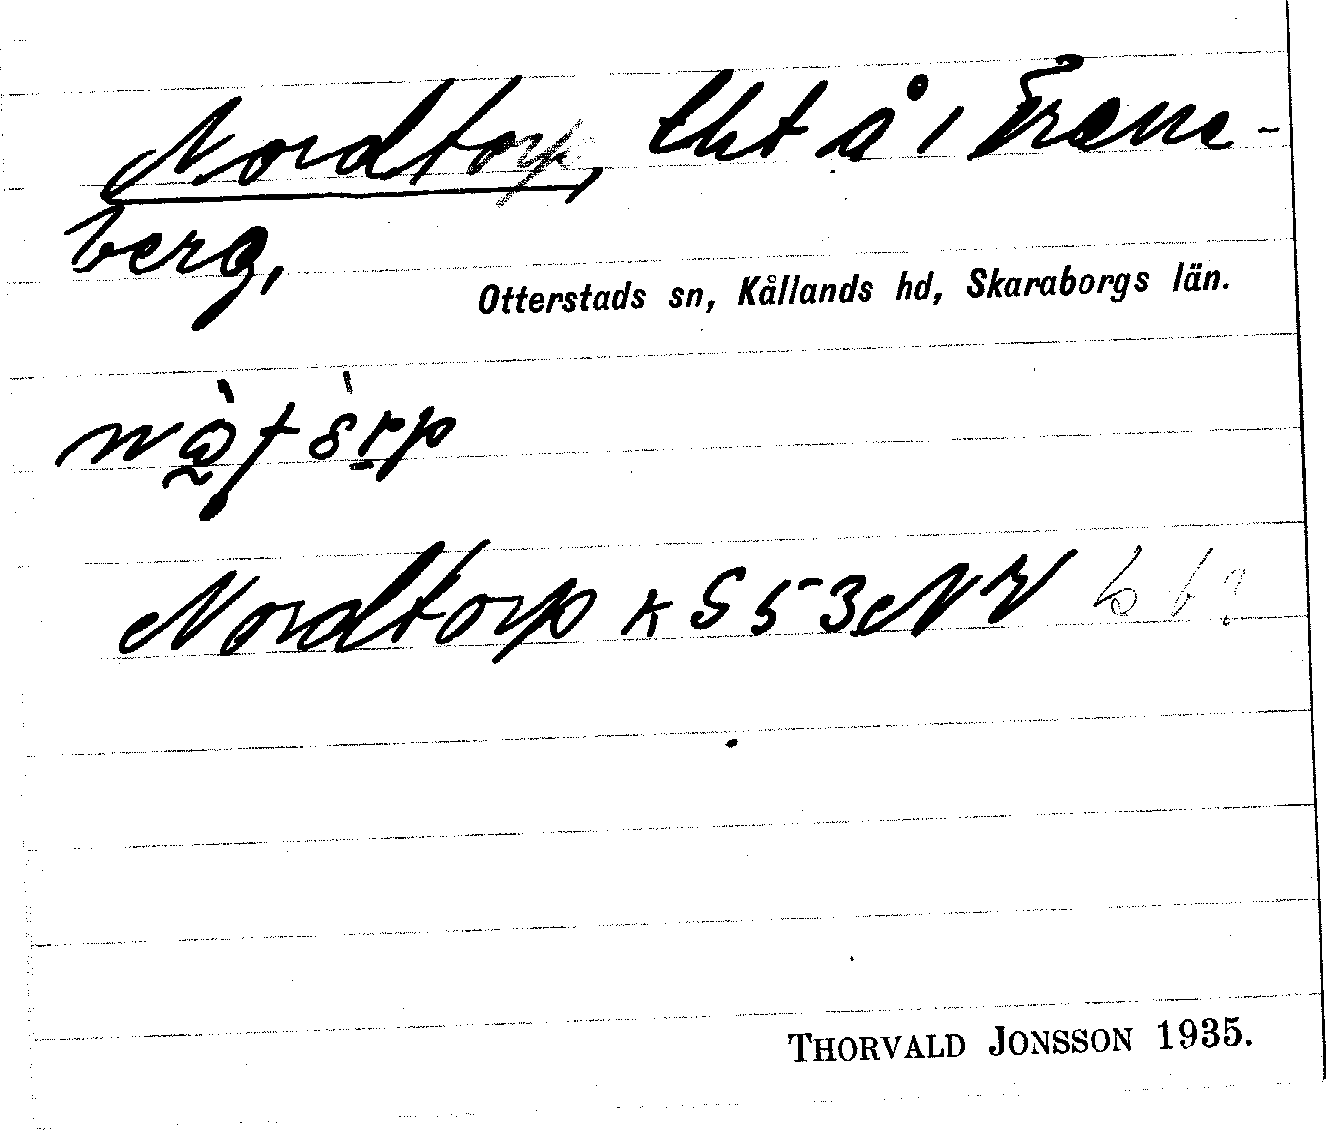 Nordtorp, lht å i Trane-
berg,
Otterstads sn, Kållands hd, Skaraborgs län.
Nordtorp k S 53 NV
THORVALD JONSSON 1935.